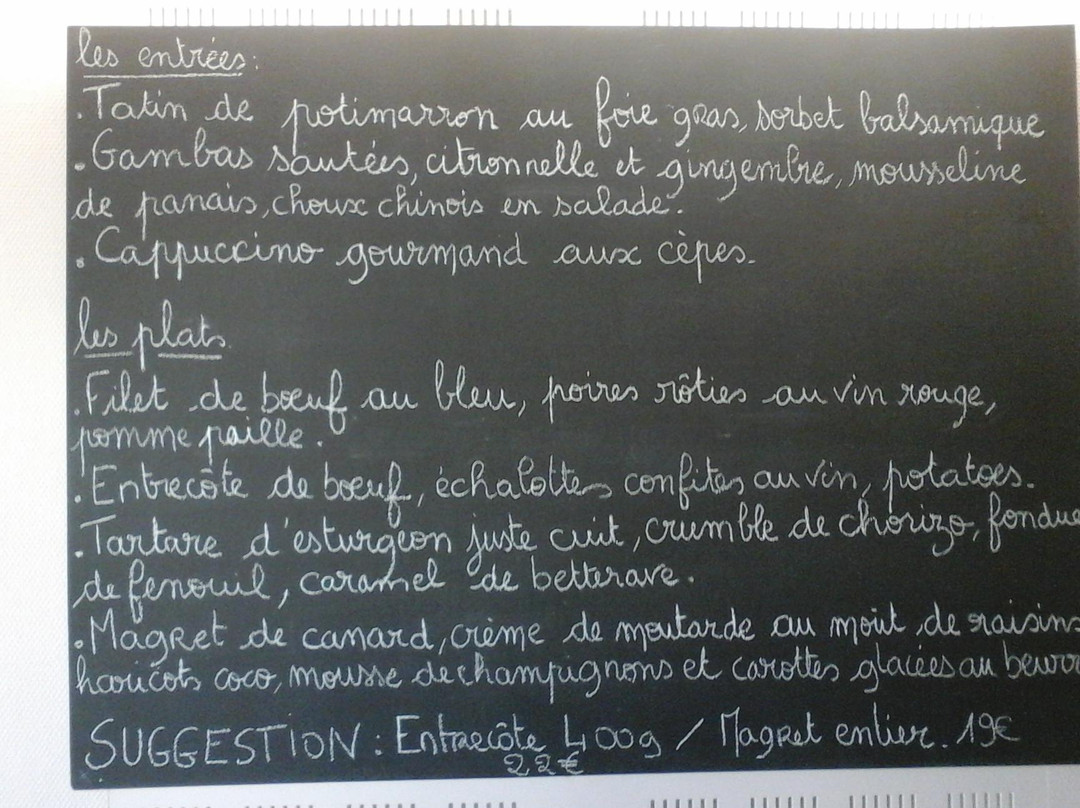 les entrées:
.Tatin de potimarron au foie gras, sorbet balsamique
.Gambas sautées, citronnelle et gingembre, mousseline
de panais, choux chinois en salade.
.Cappuccino gourmand aux cèpes.
les plats
.Filet de bœuf au bleu, poires rôties au vin rouge,
pomme paille.
.Entrecôte de bœuf, échalottes confites au vin, potatoes.
.Tartare d'esturgeon juste cuit, crumble de chorizo, fondue
de fenouil, caramel de betterave.
.Magret de canard, crème de moutarde au moût de raisins
haricots coco, mousse de champignons et carottes glacées au beurr
SUGGESTION: Entrecôte 400g / Magret entier. 19€
22€